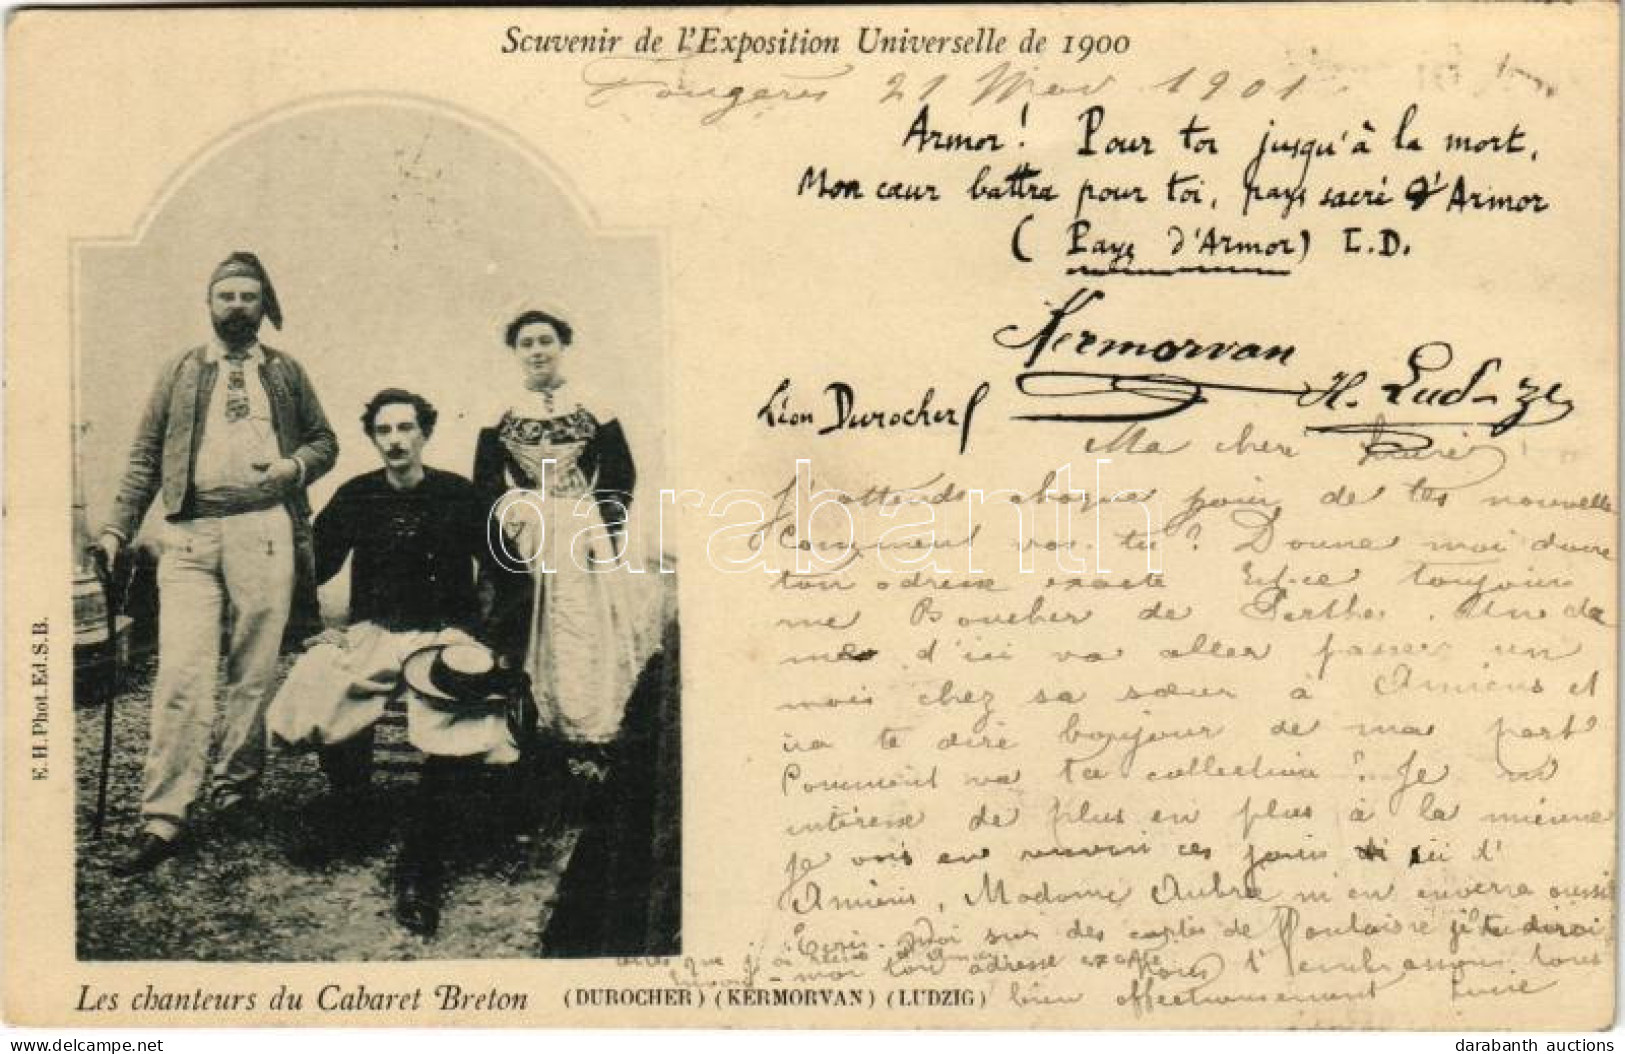 Souvenir de l'Exposition Universelle de 1900
Fougères 21 1901
Armor! Pour toi jusqu'à la mort,
Mon cœur battra pour toi, pays sacré d'Armor
(Pays d'Armor) L.D.
Kermorvan
H. Ludzig
Léon Durocher
Ma chère
J'attends chaque jour de tes nouvelle
Comment vas-tu? Donne moi donc
ton adresse exacte Est-ce toujours
me Boucher de Perthes. Une da
me d'ici va aller passer un
mois chez sa sœur à Amiens et
ira te dire bonjour de ma part
Comment va ta collection? Je m'
intéresse de plus en plus à la mienne
je vais en ces jours ici d'
Amiens, Madame m'en enverra aussi
Ecris-moi sur des cartes de je te dirai
celles que j'ai
moi ton adresse exacte l'embrassons tous
bien affectueusement Lucie
darabanth
E.H.Phot.Ed.S.B.
Les chanteurs du Cabaret Breton (DUROCHER) (KERMORVAN) (LUDZIG)
www.delcampe.net
darabanth auctions